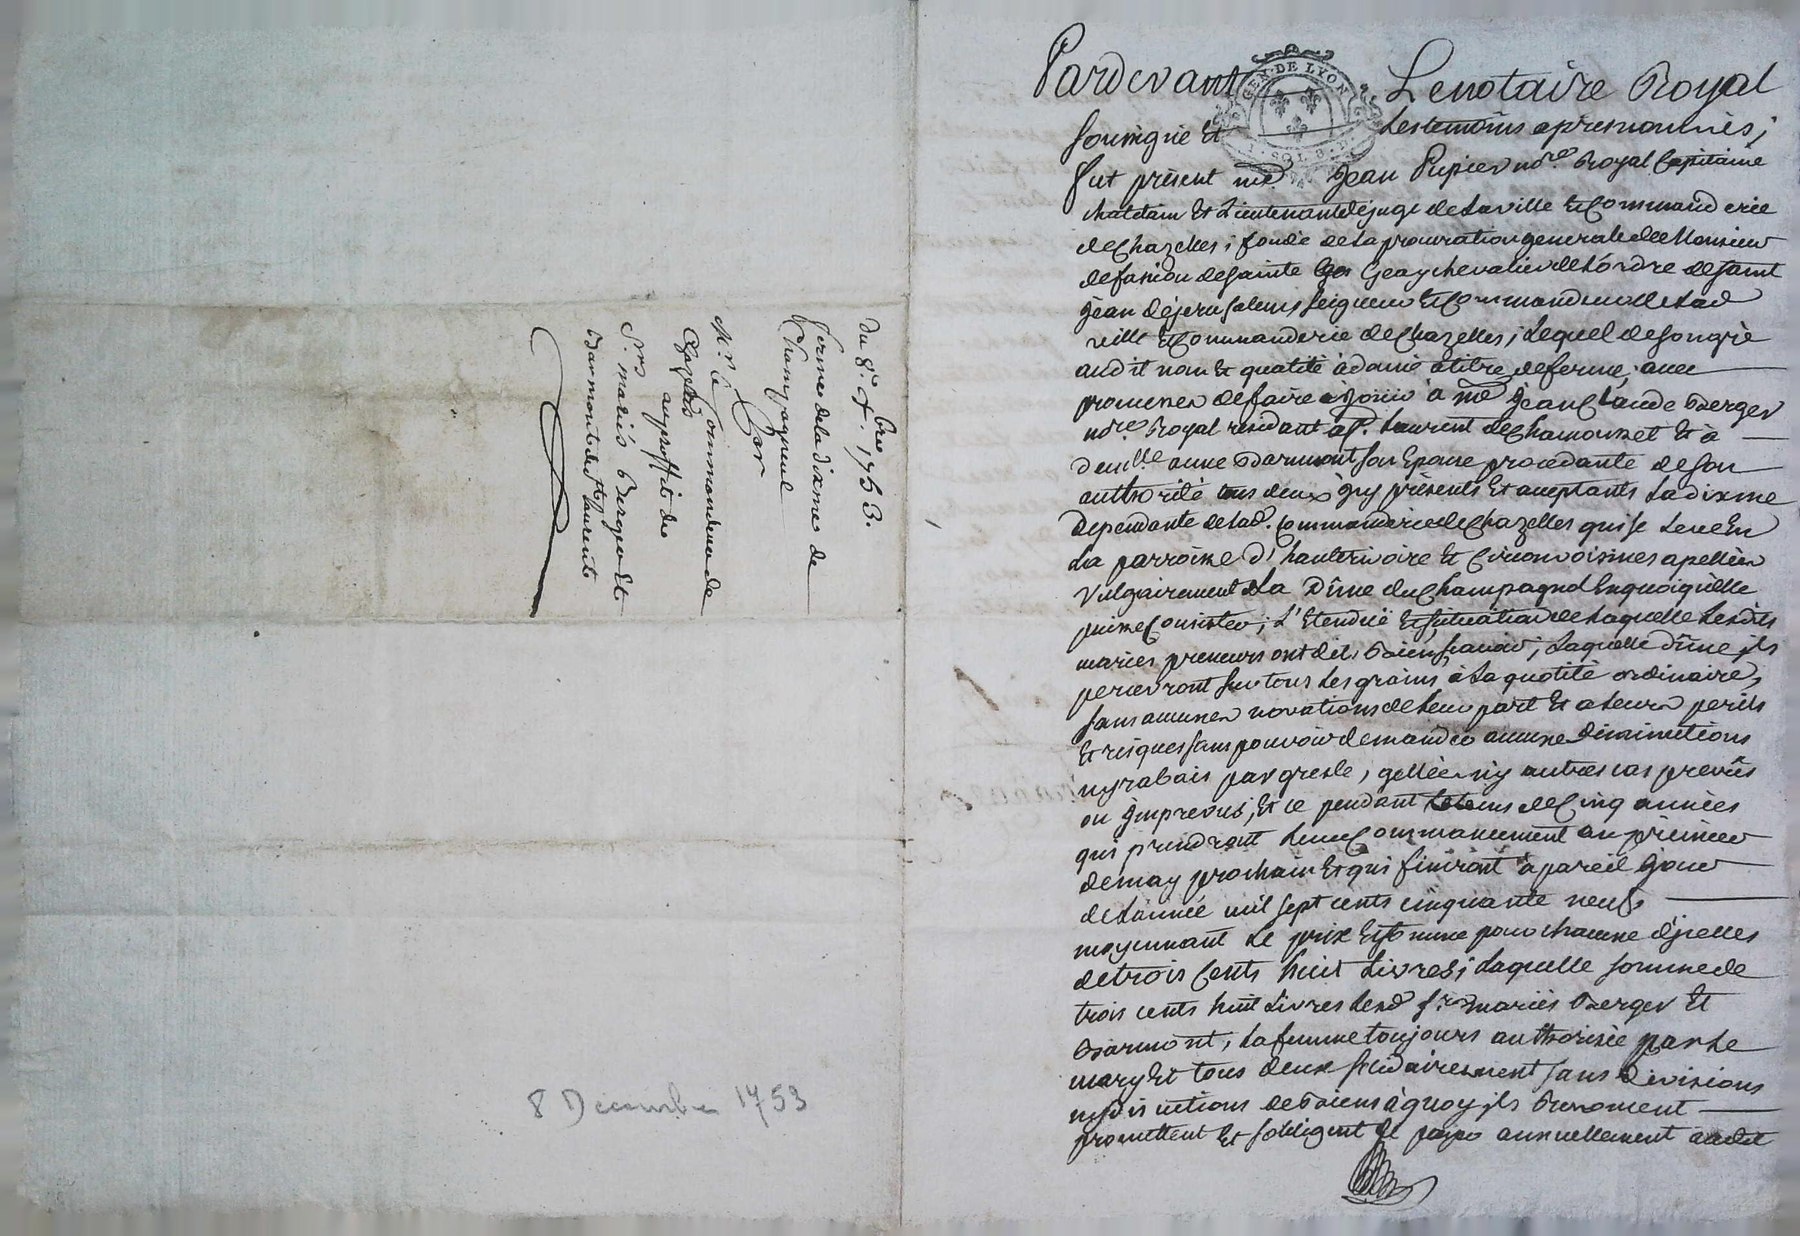 du 8.e Xbre 1753.
ferme de la dixme de
Champagneul
Par
Mr. le Commandeur de
Chazelles
au proffit des
Srs. mariés Berger et
Barmont de St. Laurent
8 Decembre 1753
GEN. DE LYON
Pardevant Le notaire Royal
soussigné Et Les temoins apres nommés;
fut présent me Jean Pupier nore. Royal Capitaine
chatelain Et Lieutenant de juge de La ville Et Commanderie
de Chazelles; fondé de La procuration generale de Monsieur
de fassion de sainte Geay chevalier de L'ordre de saint
Jean de jerusalem seigneur Et Commandeur de Lad
ville Et Commanderie de Chazelles; Lequel de son gré
audit nom Et qualité à donné à titre de ferme, avec
promesses de faire joüir à me Jean Claude Berger
nore. Royal residant à St. Laurent de Chamousset Et à
demlle. anne Barmont son Epouse procedante de son
authorité tous deux jcy présents Et acceptants La dixme
Dependante de Lad. Commanderie de Chazelles qui se Leve En
La parroisse d'hauterivoire Et Circonvoisines apellée
Vulgairement La Dîme du Champagnol En quoiqu'Elle
puisse Consister; L'Etendüe Et situation de Laquelle Lesdits
mariés preneurs ont dit Bien sçavoir; Laquelle dîme jls
percevront sur tous Les grains à La quotité ordinaire,
sans aucunes novations de Leur part Et a Leurs perils
Et risques sans pouvoir demander aucune Diminutions
ny rabais par gresle, gellées ny autres cas prevûs
ou jmprevus; Et ce pendant Le tems de Cinq années
qui prendront Leur Commancement au premier
de may prochain Et qui finiront à pareil jour
de L'année mil sept cents cinquante neuf
moyennant Le prix Et somme pour chacune d'jcelles
de trois Cents huit Livres; Laquelle somme de
trois cents huit Livres Lesd srs. mariés Berger Et
Barmont, La femme toujours authorisée par Le
mary Et tous deux solidairement sans Divisions
ny discutions de Biens à quoy jls Renoncent
promettent Et s'obligent de payer annuellement audit